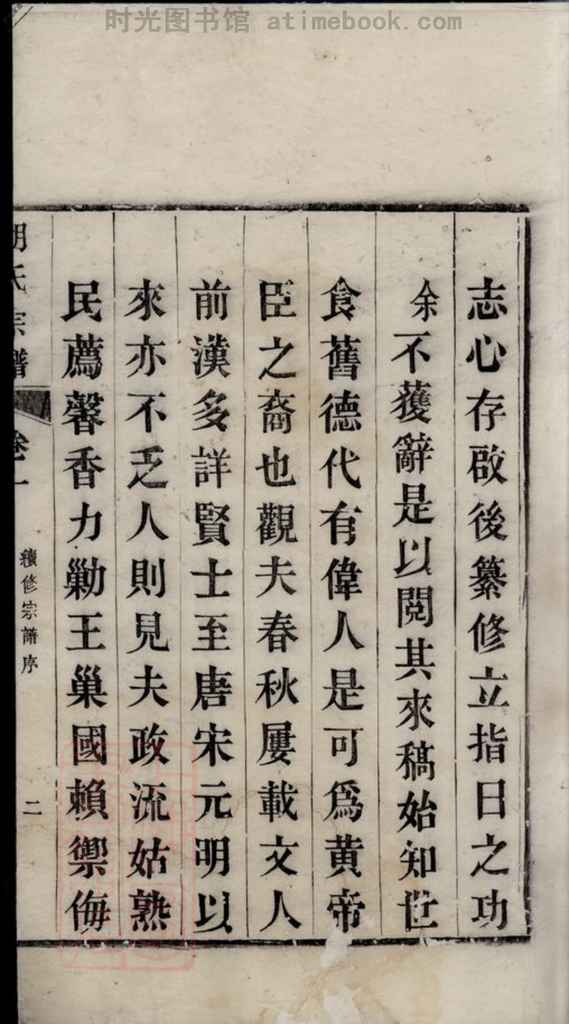 时光图书馆 atimebook.com
志心存啟後纂修立指日之功
余不獲辭是以閱其來稿始知世
食舊德代有偉人是可爲黄帝
臣之裔也觀夫春秋屢載文人
前漢多詳賢士至唐宋元明以
來亦不乏人則見夫政流姑熟
民薦馨香力勦王巢國賴禦侮
胡氏宗譜 卷一 續修宗譜序 二